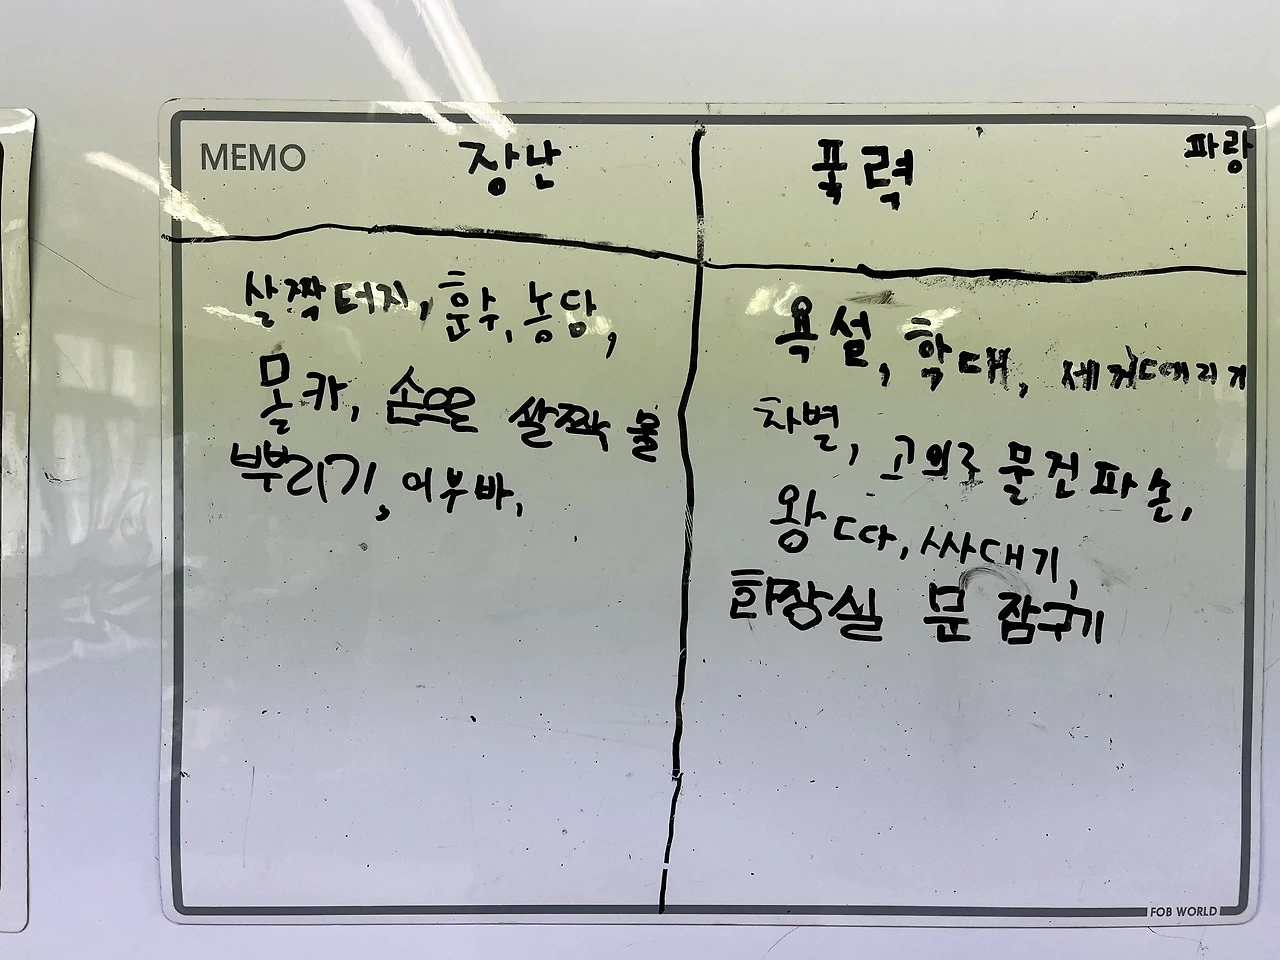 MEMO
장난
살짝 터치, 훈수, 농담,
몰카, 손으로 쌀짝 물
뿌리기, 어부바,
폭력
파랑
욕설, 학대, 세게때리기
차별, 고의로 물건 파손,
왕따, 싸대기,
화장실 문 잠구기
FOB WORLD